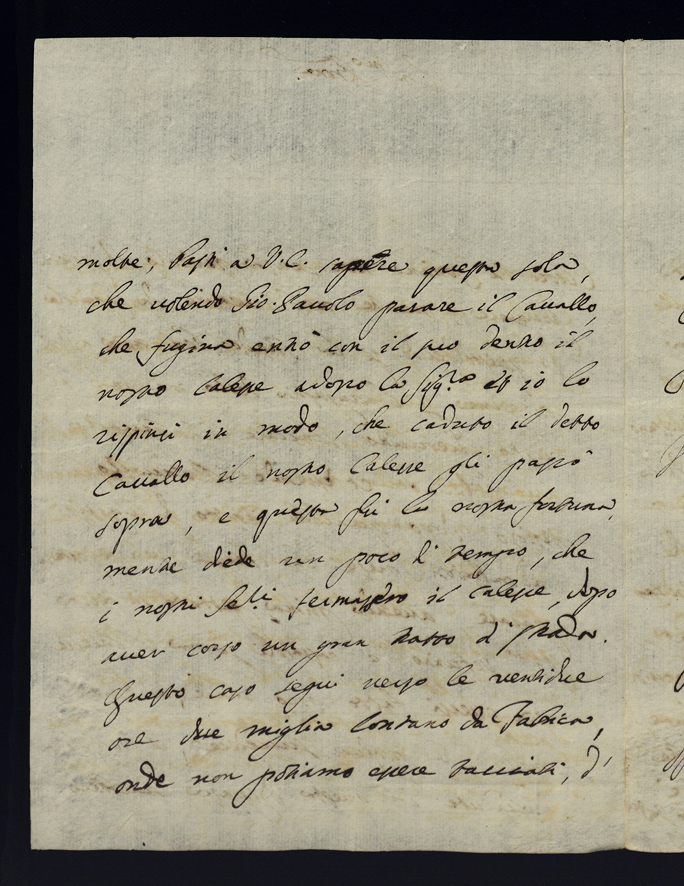 molte; basti a V.E. sapere questa sola,
che volendo Gio. Pauolo parare il Cauallo,
che fugiua entrò con il suo dentro il
nostro Calesse adosso la Sig.ra et io lo
rispinsi in modo, che caduto il detto
Cauallo il nostro Calesse gli passò
sopra, e questa fù la nostra fortuna,
mentre diede un poco di tempo, che
i nostri fermassero il calesse, dopo
auer corso un gran tratto di strada.
Questo caso seguì verso le ventidue
ore due miglia lontano da Fabrica,
onde non potiamo essere tacciati, d'